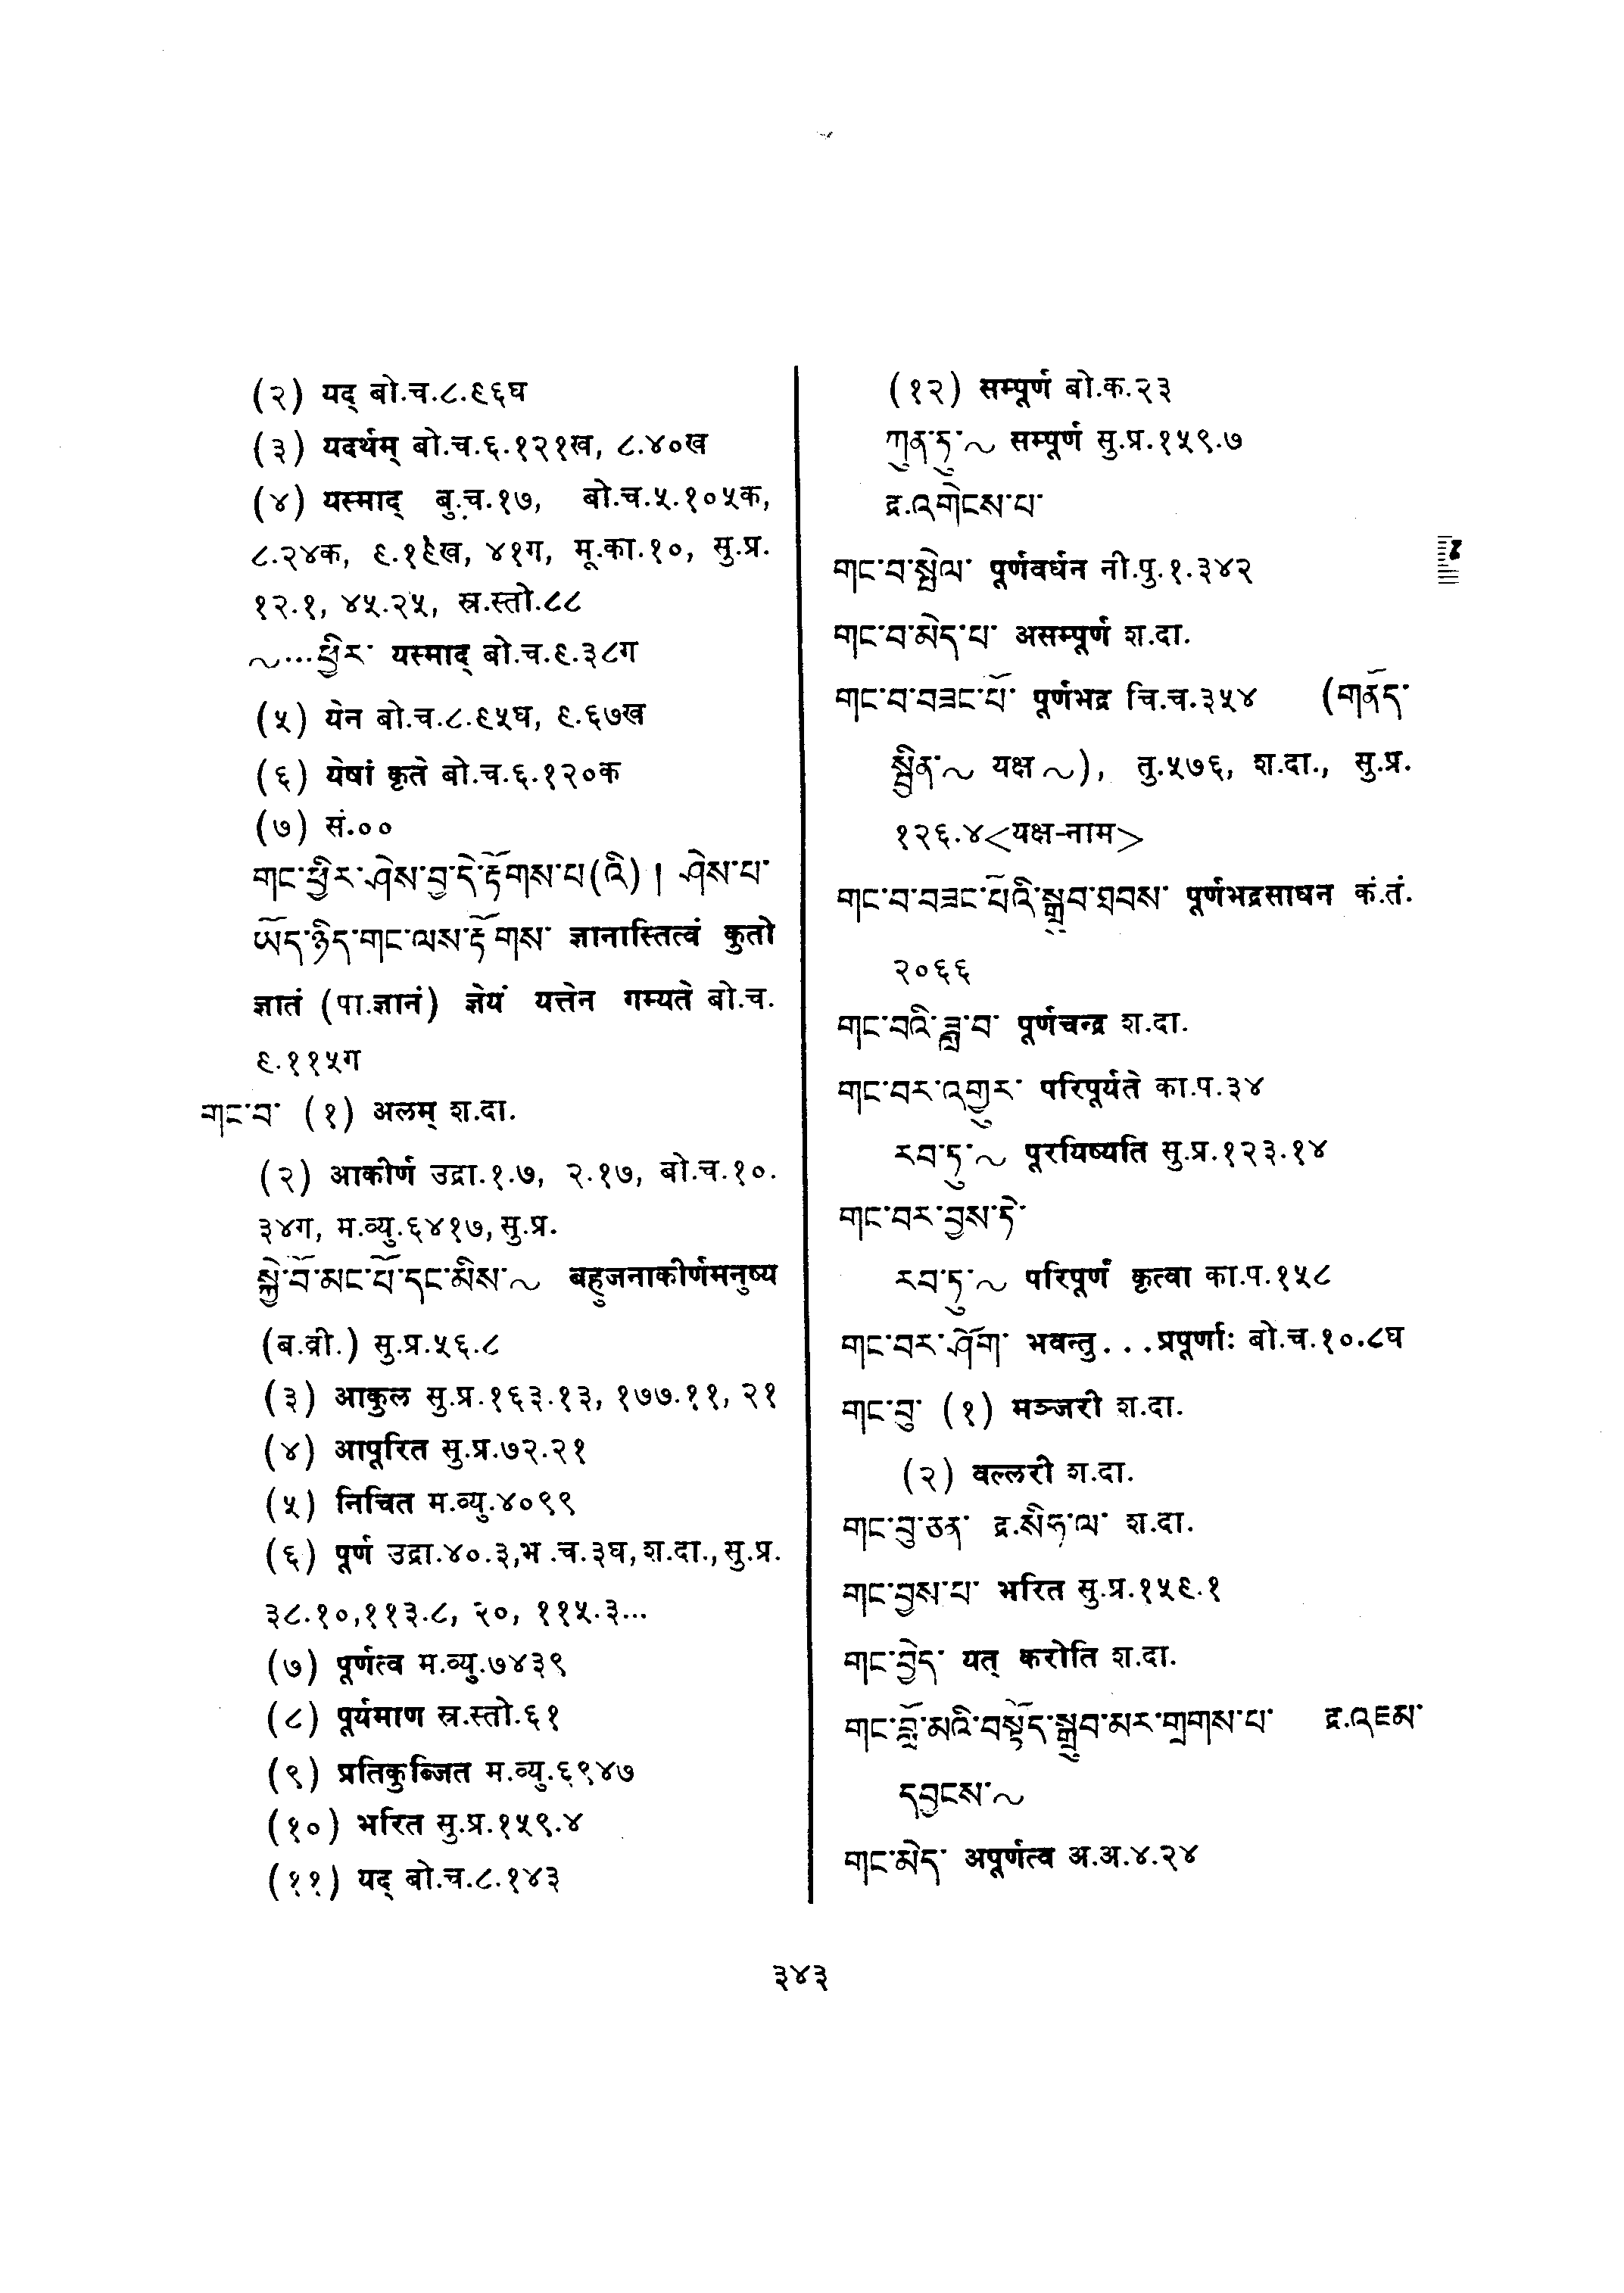 (२) यद् बो.च.८.९६घ
(३) यदर्थम् बो.च.६.१२१ख, ८.४०ख
(४) यस्माद् बु.च.१७, बो.च.५.१०५क,
८.२४क, ९.१९ख, ४१ग, मू.का.१०, सु.प्र.
१२.१, ४५.२५, स्र.स्तो.८८
~...ཕྱིར་ यस्माद् बो.च.९.३८ग
(५) येन बो.च.८.९५घ, ९.६७ख
(६) येषां कृते बो.च.६.१२०क
(७) सं.००
གང་ཕྱིར་ཤེས་བྱ་དེ་རྟོགས་པ(འི) | ཤེས་པ་
ཡོད་ཉིད་གང་ལས་རྟོགས་ ज्ञानास्तित्वं कुतो
ज्ञातं (पा.ज्ञानं) ज्ञेयं यत्तेन गम्यते बो.च.
९.११५ग
གང་བ་ (१) अलम् श.दा.
(२) आकीर्ण उद्रा.१.७, २.१७, बो.च.१०.
३४ग, म.व्यु.६४१७, सु.प्र.
སྐྱེ་བོ་མང་པོ་དང་མིས་~ बहुजनाकीर्णमनुष्य
(ब.व्री.) सु.प्र.५६.८
(३) आकुल सु.प्र.१६३.१३, १७७.११, २१
(४) आपूरित सु.प्र.७२.२१
(५) निचित म.व्यु.४०९९
(६) पूर्ण उद्रा.४०.३,भ.च.३घ, श.दा., सु.प्र.
३८.१०,११३.८, २०, ११५.३...
(७) पूर्णत्व म.व्यु.७४३९
(८) पूर्यमाण स्र.स्तो.६१
(९) प्रतिकुब्जित म.व्यु.६९४७
(१०) भरित सु.प्र.१५९.४
(११) यद् बो.च.८.१४३
(१२) सम्पूर्ण बो.क.२३
ཀུན་ཏུ་~ सम्पूर्ण सु.प्र.१५९.७
द्र.འགེངས་པ་
གང་བ་སྤེལ་ पूर्णवर्धन नी.पु.१.३४२
གང་བ་མེད་པ་ असम्पूर्ण श.दा.
གང་བ་བཟང་པོ་ पूर्णभद्र चि.च.३५४ (གནོད་
སྦྱིན་~ यक्ष ~), तु.५७६, श.दा., सु.प्र.
१२६.४<यक्ष-नाम>
གང་བ་བཟང་པོའི་སྒྲུབ་ཐབས་ पूर्णभद्रसाधन कं.तं.
२०६६
གང་བའི་ཟླ་བ་ पूर्णचन्द्र श.दा.
གང་བར་འགྱུར་ परिपूर्यते का.प.३४
རབ་ཏུ་~ पूरयिष्यति सु.प्र.१२३.१४
གང་བར་བྱས་ཏེ་
རབ་ཏུ་~ परिपूर्णं कृत्वा का.प.१५८
གང་བར་ཤོག་ भवन्तु...प्रपूर्णाः बो.च.१०.८घ
གང་བུ་ (१) मञ्जरी श.दा.
(२) वल्लरी श.दा.
གང་བུ་ཅན་ द्र.སིཧ་ལ་ श.दा.
གང་བྱས་པ་ भरित सु.प्र.१५९.१
གང་བྱེད་ यत् करोति श.दा.
གང་བློ་མའི་བསྟོད་སྒྲུབ་མར་གྲགས་པ་ द्र.འཇམ་
དབྱངས་~
གང་མེད་ अपूर्णत्व अ.अ.४.२४
३४३